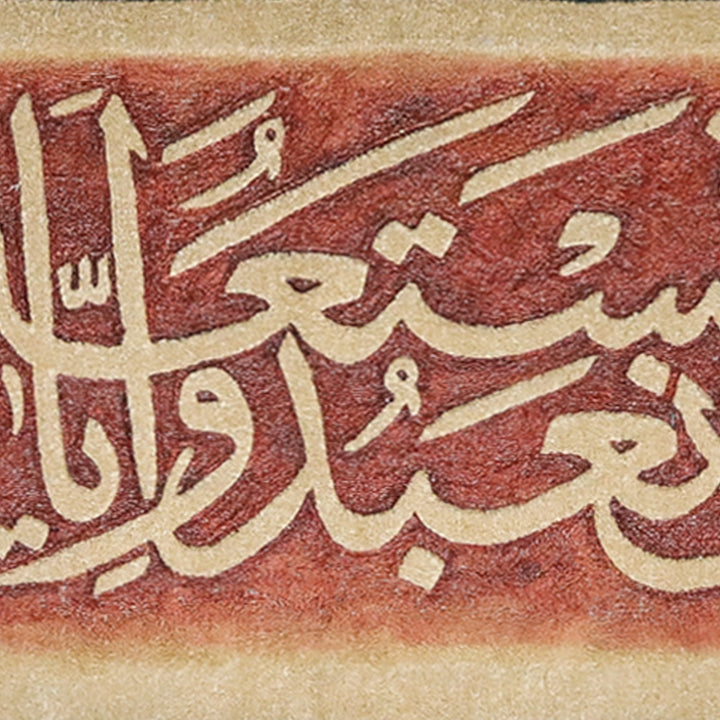 نَعْبُدُ وَإِيَّا
نَسْتَع